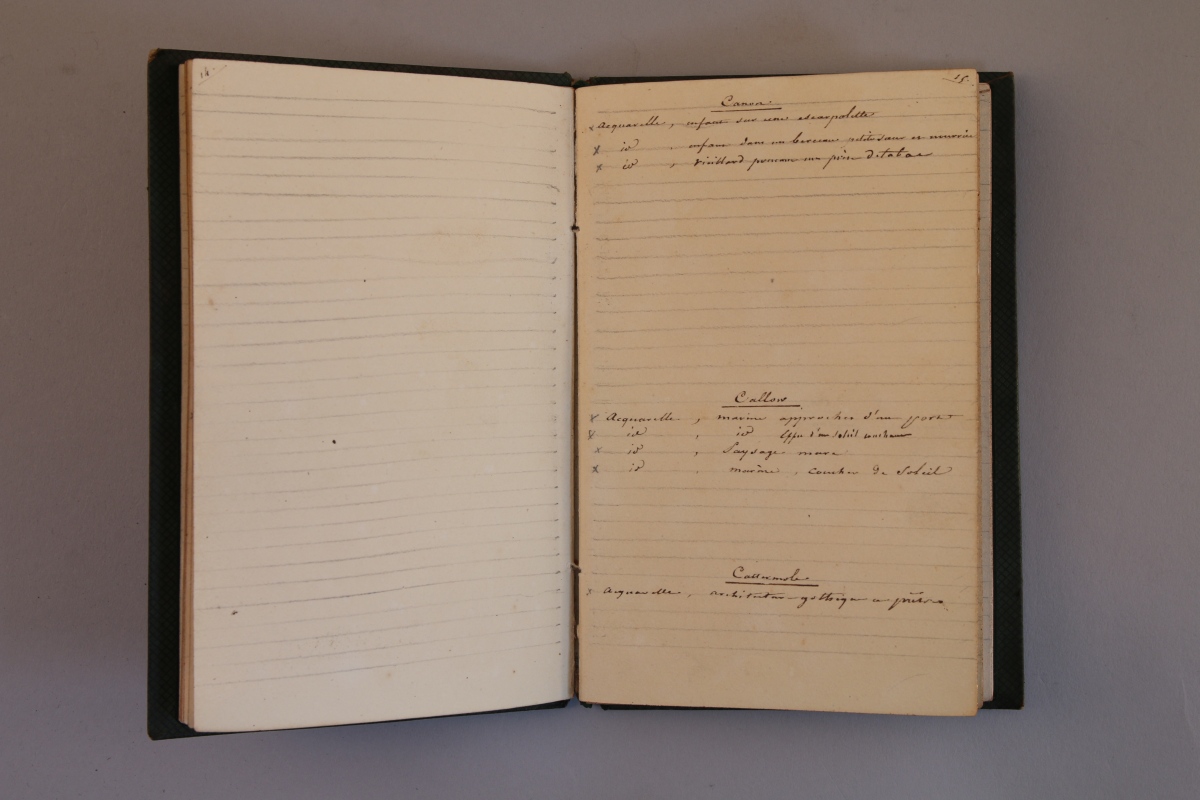 14.
15.
Canon
x Acquarelle, enfant sur une escarpolette
x id , enfant dans un berceau
x id , vieillard prenant une prise de tabac
Callow
x Acquarelle, marine approches d'un port
x id , id Effet d'un soleil couchant
x id , Paysage mare
x id , marine, coucher de Soleil
Cattermole
x Acquarelle, architecture gothique